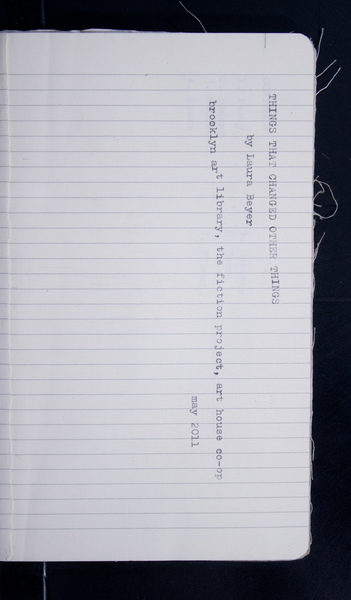 THINGS THAT CHANGED OTHER THINGS
by Laura Beyer
brooklyn art library, the fiction project, art house co-op
may 2011